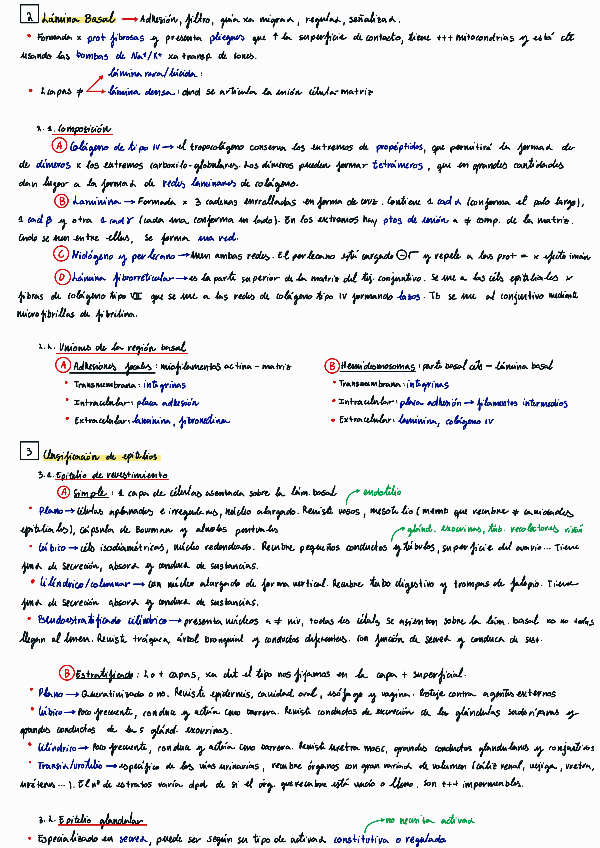 2 Lámina Basal → Adhesión, filtro, guía xa migrad, regulad, señalizad.
• Formada x prot fibrosas y presenta pliegues que ↑ la superficie de contacto, tiene +++ mitocondrias y está ctte
usando las bombas de Na+/K+ xa transp. de iones.
lámina rara/lúcida:
• 2 capas ≠ lámina densa: dond se articula la unión célula-matriz
2.1. Composición
A Colágeno de tipo IV → el tropocolágeno conserva los extremos de propéptidos, que permitirá la formad de
de dímeros x los extremos carboxilo-globulares. Los dímeros pueden formar tetrámeros, que en grandes cantidades
dan lugar a la formad de redes laminares de colágeno.
B Laminina → Formada x 3 cadenas enrolladas en forma de cruz. Contiene 1 cad α (conforma el palo largo),
1 cad β y otra 1 cad γ (cada una conforma un lado). En los extremos hay ptos de unión a ≠ comp. de la matriz.
Cndo se unen entre ellas, se forma una red.
C Nidógeno y perlecano → Unen ambas redes. El perlecano está cargado ⊖ y repele a las prot = x efecto imán
D Lámina fibrorreticular → es la parte superior de la matriz del tej. conjuntivo. Se une a las céls epiteliales x
fibras de colágeno tipo VII que se une a las redes de colágeno tipo IV formando lazos. Tb se une al conjuntivo mediante
microfibrillas de fibrilina.
2.2. Uniones de la región basal
A Adhesiones focales: miofilamentos actina - matriz
• Transmembrana: integrinas
• Intracelular: placa adhesión
• Extracelular: laminina, fibronectina
B Hemidesmosomas: parte basal cito - lámina basal
• Transmembrana: integrinas
• Intracelular: placa adhesión → filamentos intermedios
• Extracelular: laminina, colágeno IV
3 Clasificación de epitelios
3.1. Epitelio de revestimiento
A Simple: 1 capa de células asentada sobre la lám. basal
endotelio
• Plano → células aplanadas e irregulares, núcleo alargado. Reviste vasos, mesotelio (memb que recubre ≠ cavidades
epiteliales), cápsula de Bowman y alveolos pulmonales
gland. exocrinas, túb. recolectores riñón
• Cúbico → céls isodiamétricas, núcleo redondeado. Recubre pequeños conductos y túbulos, superficie del ovario... Tiene
func de secreción, absord y conducd de sustancias.
• Cilíndrico/columnar → con núcleo alargado de forma vertical. Recubre tubo digestivo y trompas de falopio. Tiene
func de secreción, absord y conducd de sustancias.
• Pseudoestratificado cilíndrico → presenta núcleos a ≠ niv, todas las céluls se asientan sobre la lám. basal xo no todas
llegan al lumen. Reviste tráquea, árbol bronquial y conductos deferentes. Con función de secred y conducd de sust.
B Estratificado: 2 o + capas, xa det el tipo nos fijamos en la capa + superficial.
• Plano → Queratinizado o no. Reviste epidermis, cavidad oral, esófago y vagina. Protege contra agentes externos
• Cúbico → Poco frecuente, conduce y actúa como barrera. Reviste conductos de excreción de las glándulas sudoríparas y
grandes conductos de las glánd. exocrinas.
• Cilíndrico → Poco frecuente, conduce y actúa como barrera. Reviste uretra masc, grandes conductos glandulares y conjuntivas
• Transic/urotelio → específico de las vías urinarias, recubre órganos con gran variad de volumen (cáliz renal, vejiga, uretra,
uréteres...). El nº de estratos varía dpnd de si el órg. que recubre está vacío o lleno. Son +++ impermeables.
3.2. Epitelio glandular
no necesita activad
• Especializado en secred, puede ser según su tipo de activad constitutiva o regulada